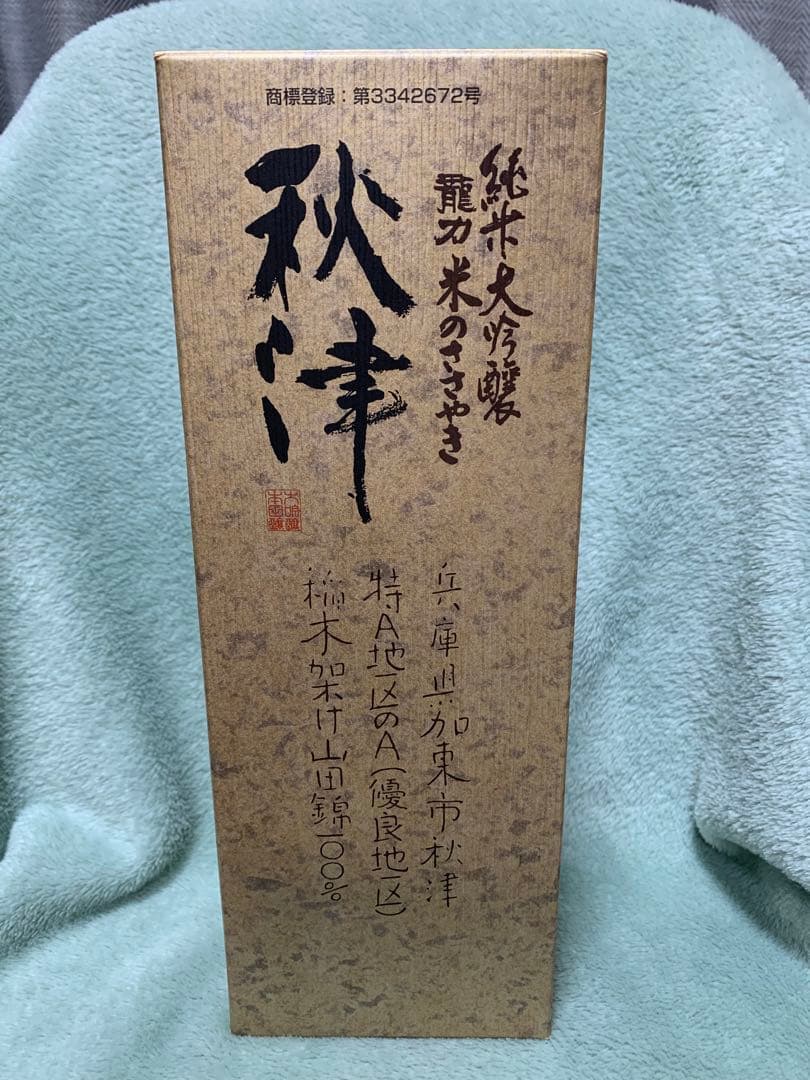 商標登録：第3342672号
純米大吟醸
龍力 米のささやき
秋津
兵庫県加東市秋津
特A地区のA(優良地区)
稲木架け山田錦一〇〇%